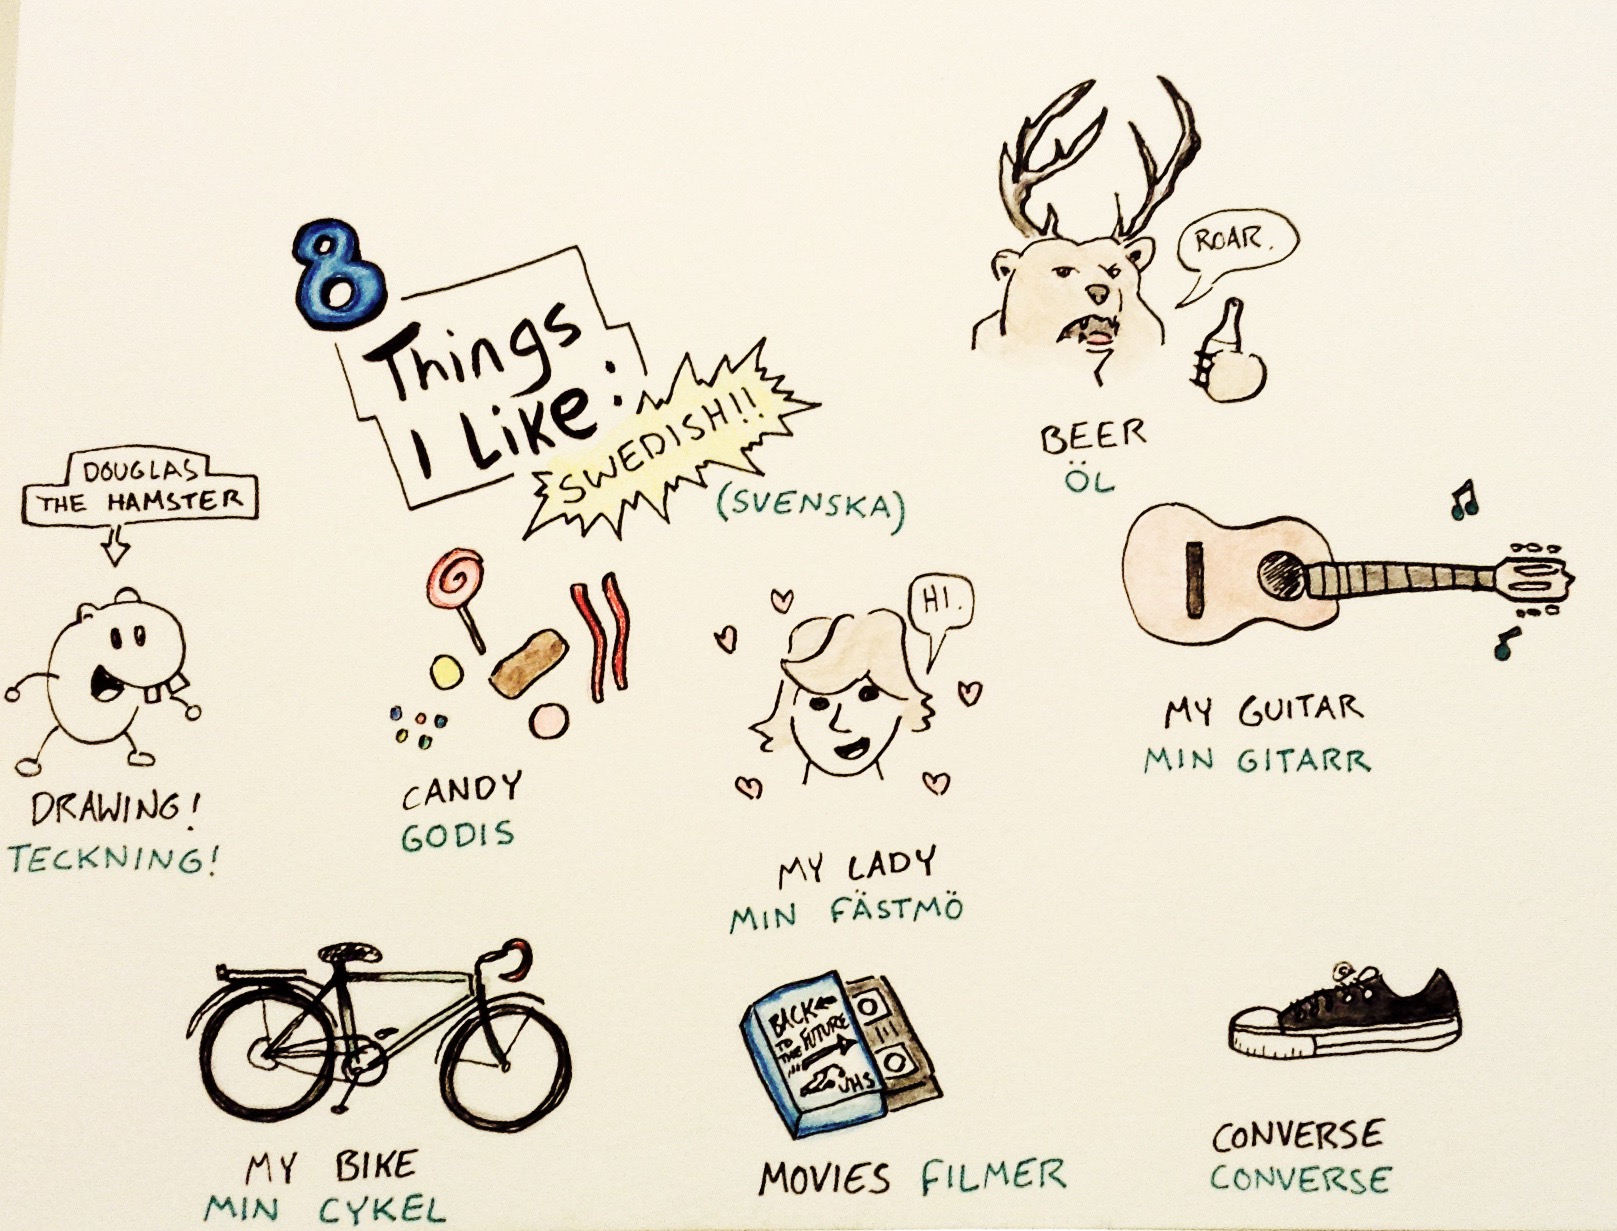 8
Things
I Like:
SWEDISH!!
(SVENSKA)
ROAR.
BEER
ÖL
DOUGLAS
THE HAMSTER
DRAWING!
TECKNING!
CANDY
GODIS
HI.
MY LADY
MIN FÄSTMÖ
MY GUITAR
MIN GITARR
MY BIKE
MIN CYKEL
BACK
TO
THE FUTURE
VHS
MOVIES FILMER
CONVERSE
CONVERSE